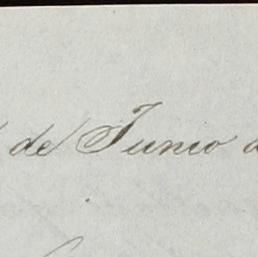 de Junio d